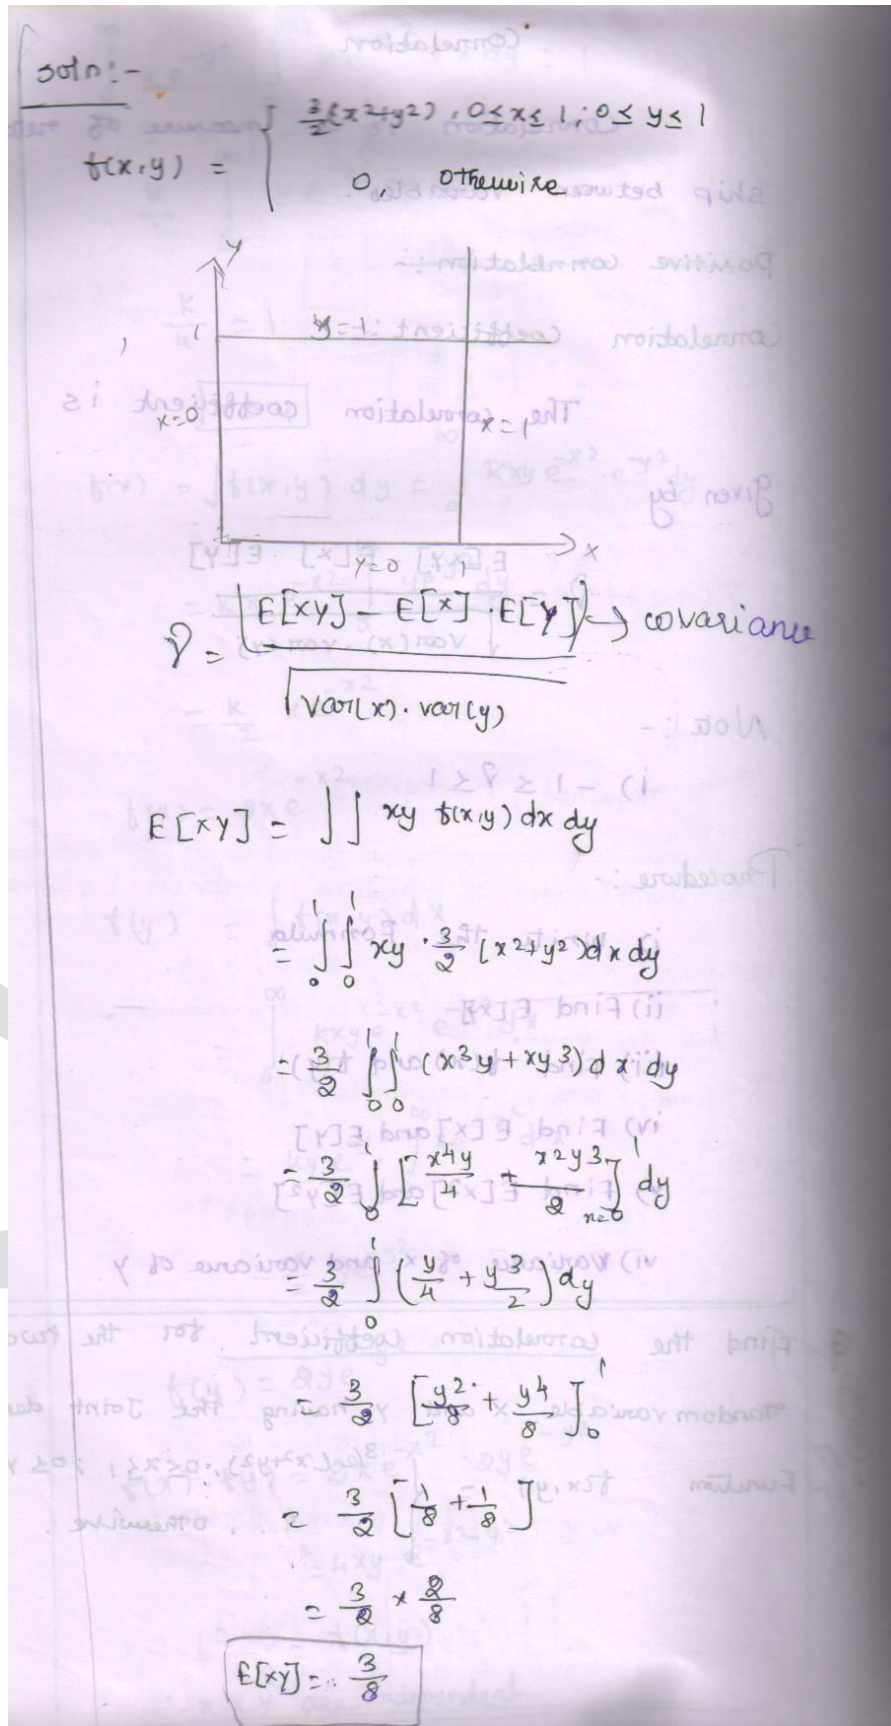 soln:-
f(x,y) = { 3/2 (x2+y2), 0≤x≤1; 0≤y≤1
0, otherwise
y
1
y=1
x=0
x=1
y=0
1
x
γ = E[xy] - E[x]·E[y] → covariance
√var(x)·var(y)
E[xy] = ∫∫ xy f(x,y) dx dy
= ∫₀¹ ∫₀¹ xy · 3/2 (x2+y2) dx dy
= 3/2 ∫₀¹ ∫₀¹ (x3y + xy3) dx dy
= 3/2 ∫₀¹ [x4y/4 + x2y3/2]¹ₓ₌₀ dy
= 3/2 ∫₀¹ (y/4 + y3/2) dy
= 3/2 [y2/8 + y4/8]₀¹
= 3/2 [1/8 + 1/8]
= 3/2 × 2/8
E[xy] = 3/8